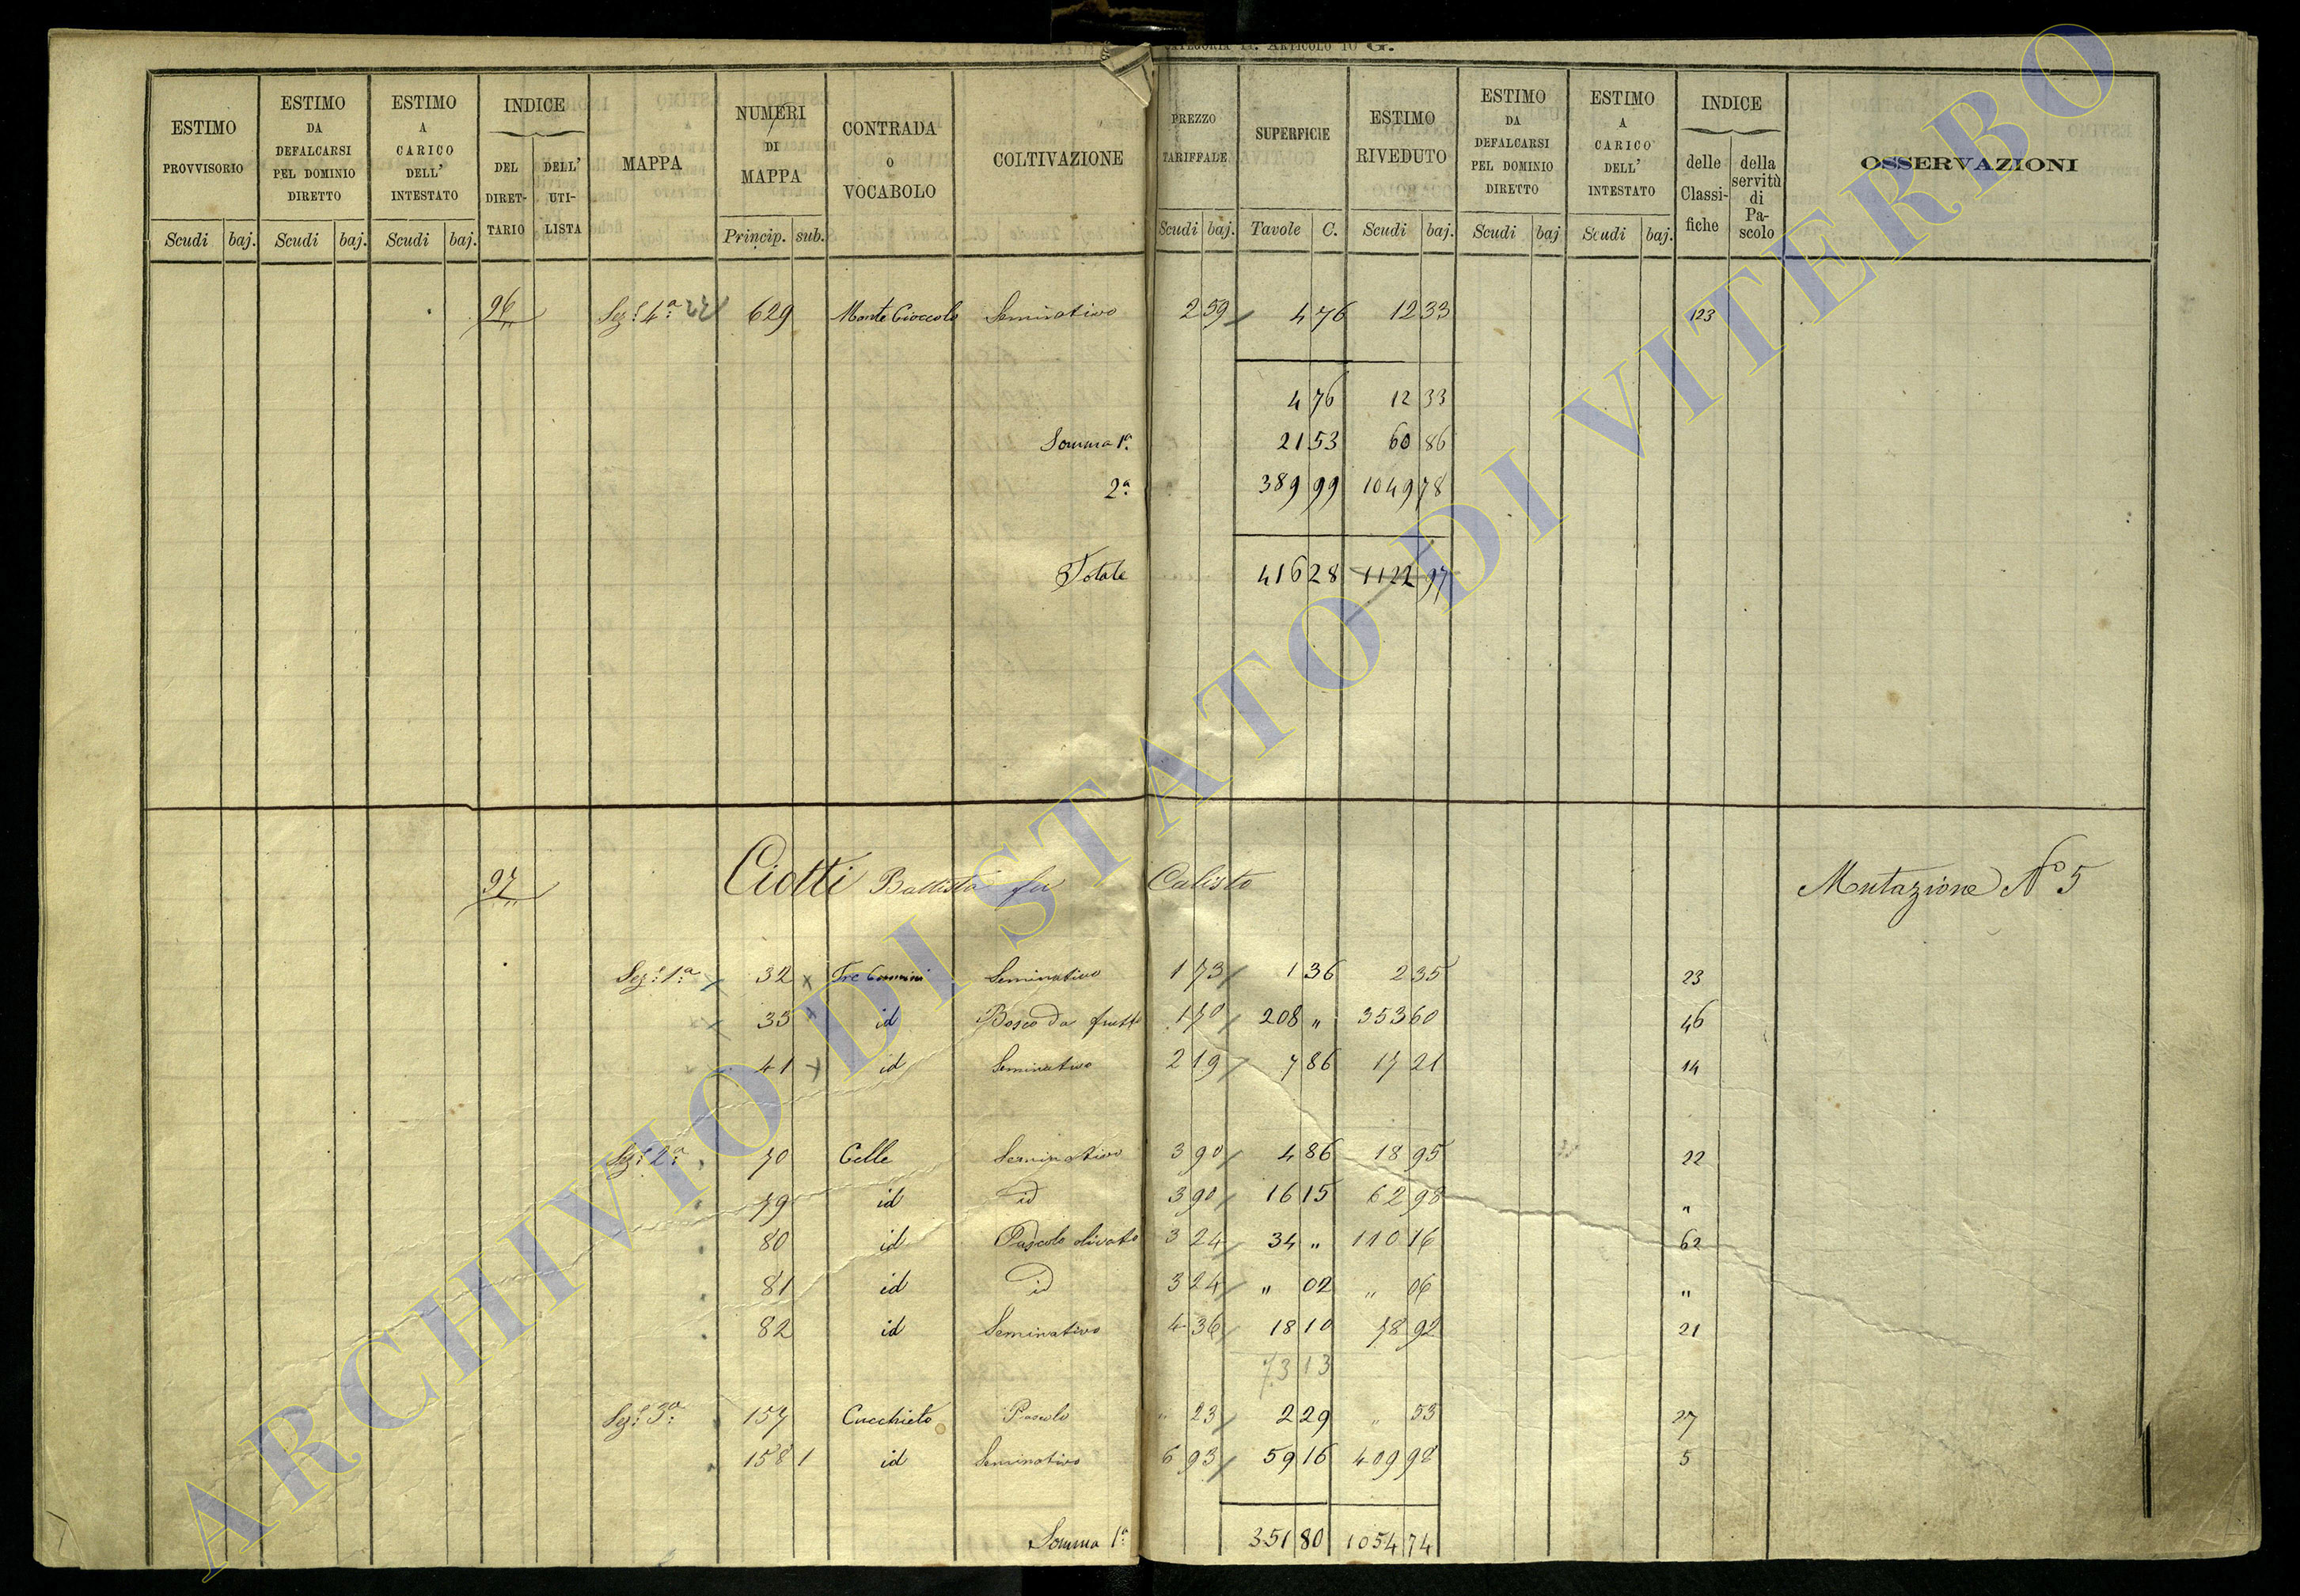 CATEGORIA II. ARTICOLO 10 G.
ESTIMO PROVVISORIO Scudi baj.
ESTIMO DA DEFALCARSI PEL DOMINIO DIRETTO Scudi baj.
ESTIMO A CARICO DELL' INTESTATO Scudi baj.
INDICE DEL DIRET-TARIO DELL' UTI-LISTA
MAPPA
NUMERI DI MAPPA Princip. sub.
CONTRADA O VOCABOLO
COLTIVAZIONE
PREZZO TARIFFALE Scudi baj.
SUPERFICIE Tavole C.
ESTIMO RIVEDUTO Scudi baj.
ESTIMO DA DEFALCARSI PEL DOMINIO DIRETTO Scudi baj
ESTIMO A CARICO DELL' INTESTATO Scudi baj.
INDICE delle Classi-fiche della servitù di Pa-scolo
OSSERVAZIONI
96 Sez: 4ª 629 Monte Cioccolo Seminativo 2 59 4 76 12 33 123
4 76 12 33
Somma 1ª 21 53 60 86
2ª 389 99 1049 78
Totale 416 28 1122 97
97 Ciotti Battista fu Calisto Mutazione N° 5
Sez: 1ª 32 Tre Confini Seminativo 1 73 1 36 2 35 23
33 id Bosco da frutto 1 70 208 " 353 60 46
41 id Seminativo 2 19 7 86 17 21 14
Sez: 2ª 70 Celle Seminativo 3 90 4 86 18 95 22
79 id id 3 90 16 15 62 98 "
80 id Pascolo olivato 3 24 34 " 110 16 62
81 id id 3 24 " 02 " 06 "
82 id Seminativo 4 36 18 10 78 92 21
73 13
Sez: 3ª 157 Cucchieto Pascolo " 23 2 29 " 53 27
158 1 id Seminativo 6 93 59 16 409 98 5
Somma 1ª 351 80 1054 74
ARCHIVIO DI STATO DI VITERBO